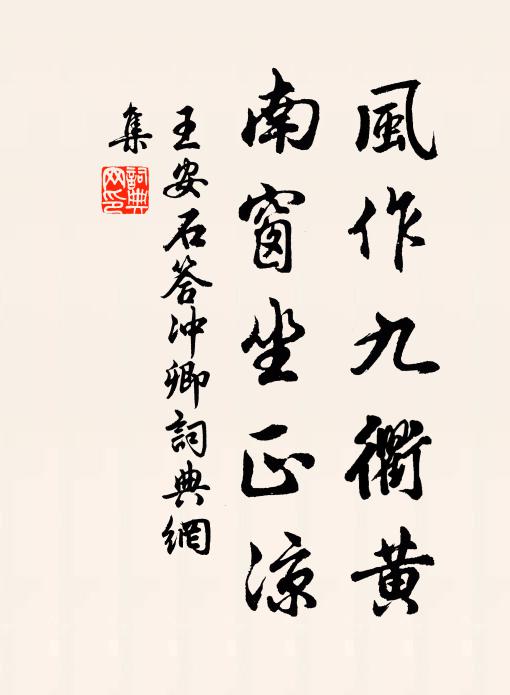 風作九衢黃
南窗坐正涼
王安石答冲卿詞典網
集
詞典网印